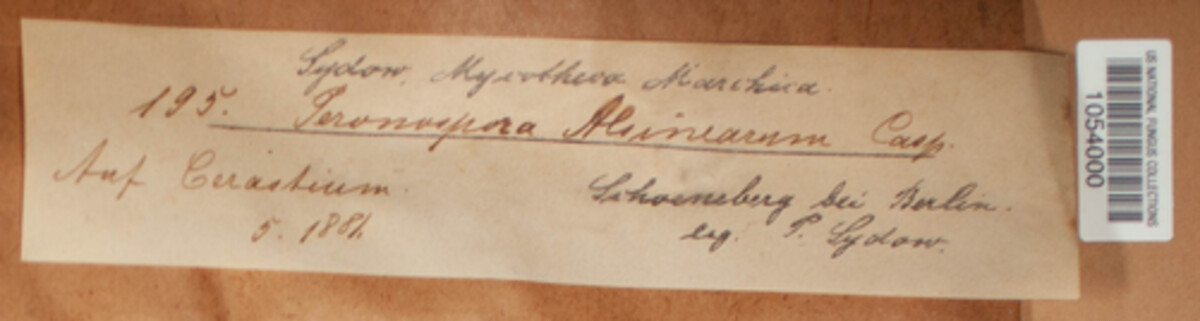 Sydow, Mycotheca Marchica.
195. Peronospora Alsinearum Casp.
Auf Cerastium.
5. 1881.
Schoeneberg bei Berlin.
leg. P. Sydow.
US NATIONAL FUNGUS COLLECTIONS
1054000